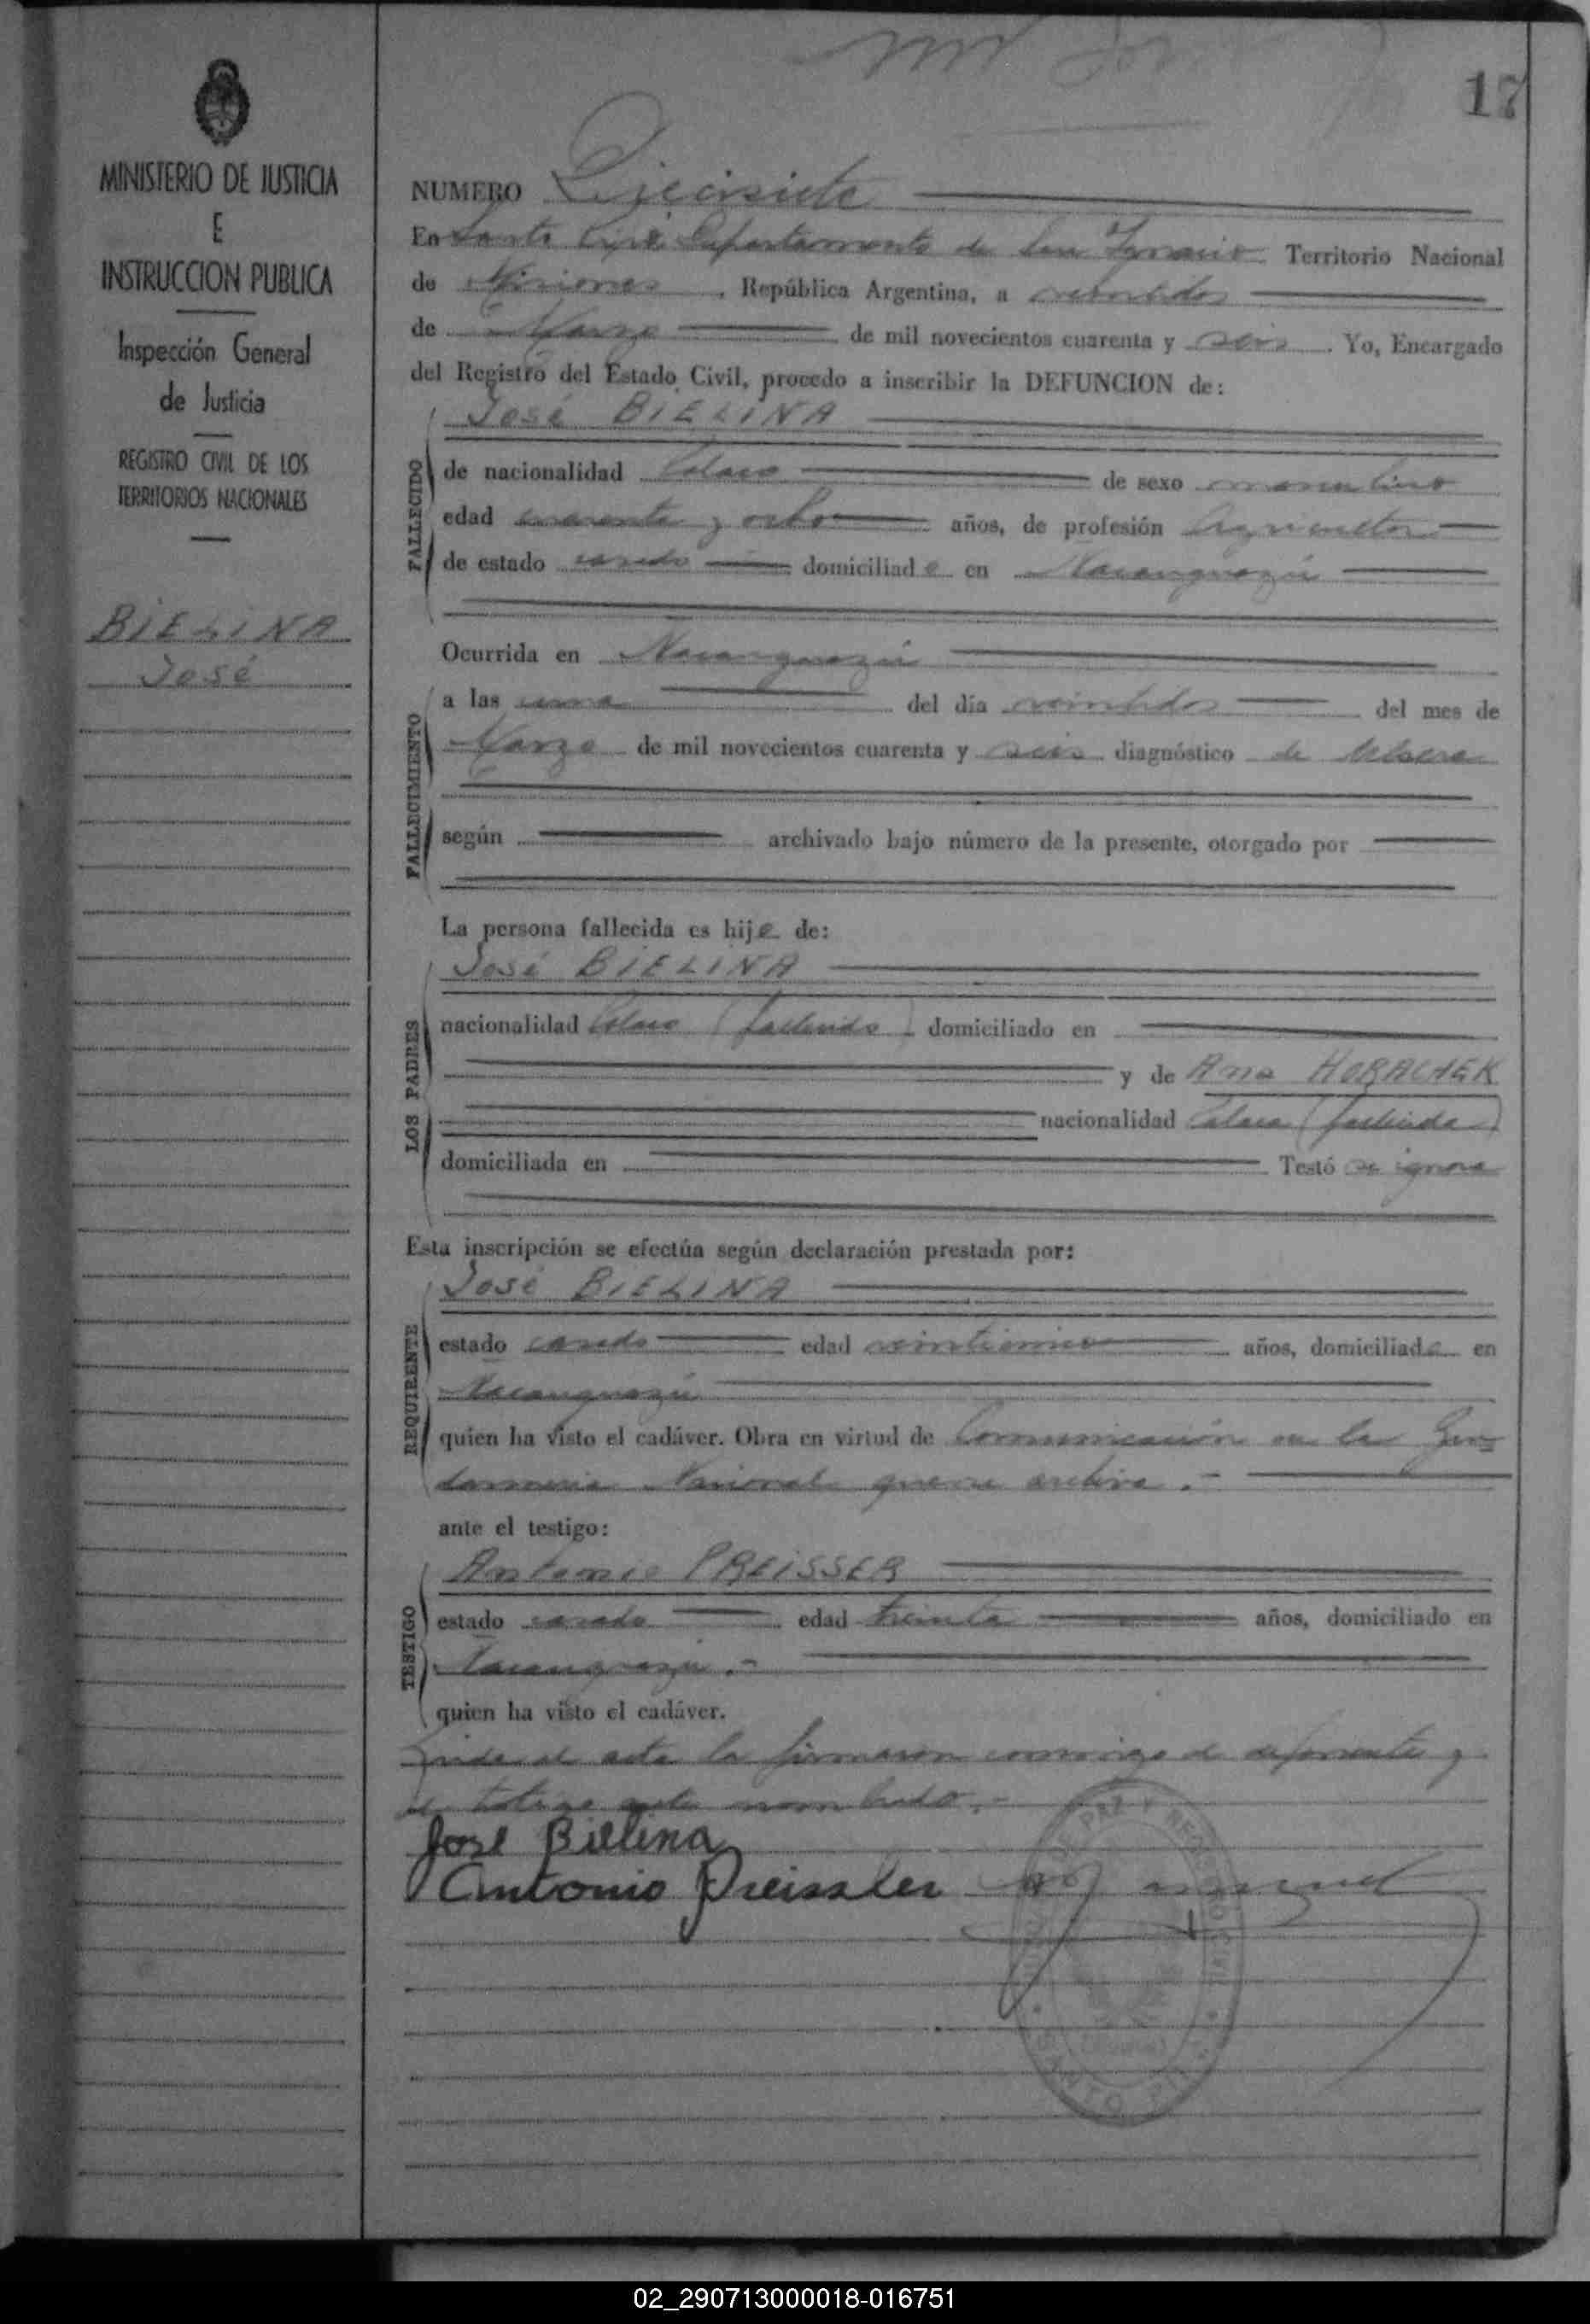 17
MINISTERIO DE JUSTICIA
E
INSTRUCCION PUBLICA
Inspección General
de Justicia
REGISTRO CIVIL DE LOS
TERRITORIOS NACIONALES
BIELINA
José
NUMERO Diecisiete
En Santo Pipó Departamento de San Ignacio Territorio Nacional
de Misiones, República Argentina, a veintidos
de Marzo de mil novecientos cuarenta y seis. Yo, Encargado
del Registro del Estado Civil, procedo a inscribir la DEFUNCION de:
José BIELINA
FALLECIDO
de nacionalidad Polaco de sexo masculino
edad cuarenta y ocho años, de profesión Agricultor
de estado casado domiciliado en Ñacanguazú
Ocurrida en Ñacanguazú
FALLECIMIENTO
a las una del día veintidos del mes de
Marzo de mil novecientos cuarenta y seis diagnóstico de
según archivado bajo número de la presente, otorgado por
La persona fallecida es hijo de:
José BIELINA
LOS PADRES
nacionalidad Polaco (fallecido) domiciliado en
y de Ana HORACHEK
nacionalidad Polaca (fallecida)
domiciliada en Testó se ignora
Esta inscripción se efectúa según declaración prestada por:
José BIELINA
REQUIRENTE
estado casado edad veinticinco años, domiciliado en
Ñacanguazú
quien ha visto el cadáver. Obra en virtud de Comunicación de la Gen
darmeria Nacional que se archiva.-
ante el testigo:
Antonio PREISSER
TESTIGO
estado casado edad treinta años, domiciliado en
Ñacanguazú.-
quien ha visto el cadáver.
Leida el acta la firmaron conmigo el deponente y
el testigo ante nombrado.-
José Bielina
Antonio Preissler
02_290713000018-016751